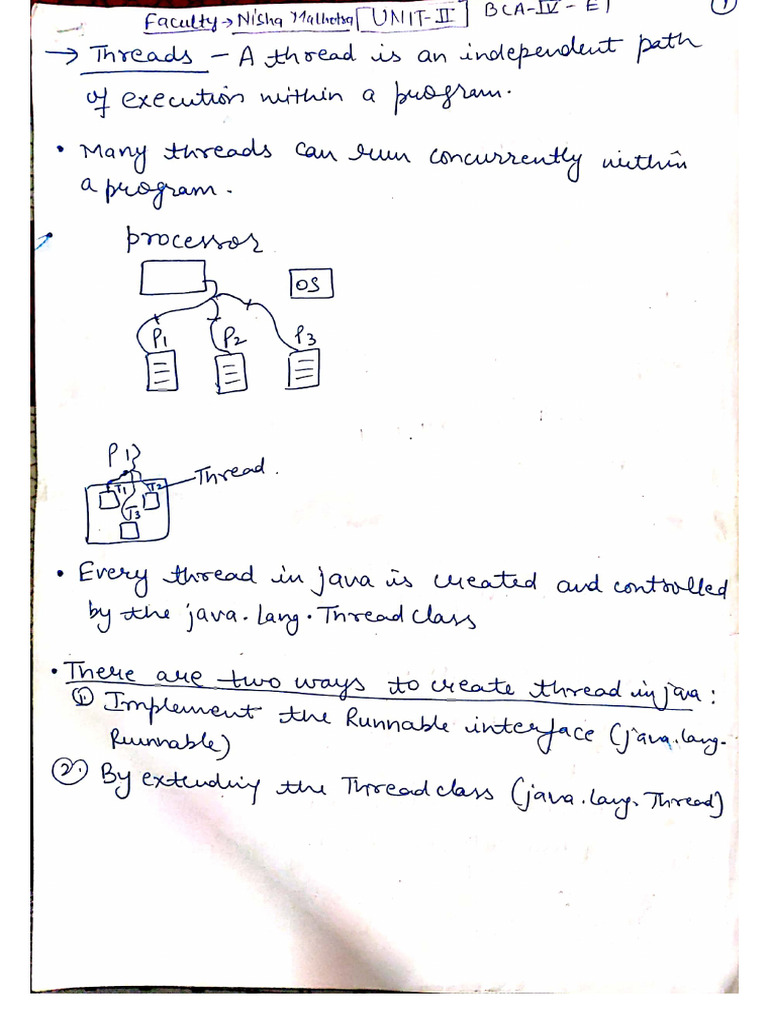 Faculty → Nisha Malhotra [UNIT-II] BCA-IV-E1 1
→ Threads - A thread is an independent path
of execution within a program.
• Many threads can run concurrently within
a program.
processor
OS
P1 P2 P3
P1
Thread.
T1 T2
T3
• Every thread in java is created and controlled
by the java.lang.Thread class
• There are two ways to create thread in java:
① Implement the Runnable interface (java.lang.
Runnable)
②. By extending the Thread class (java.lang.Thread)